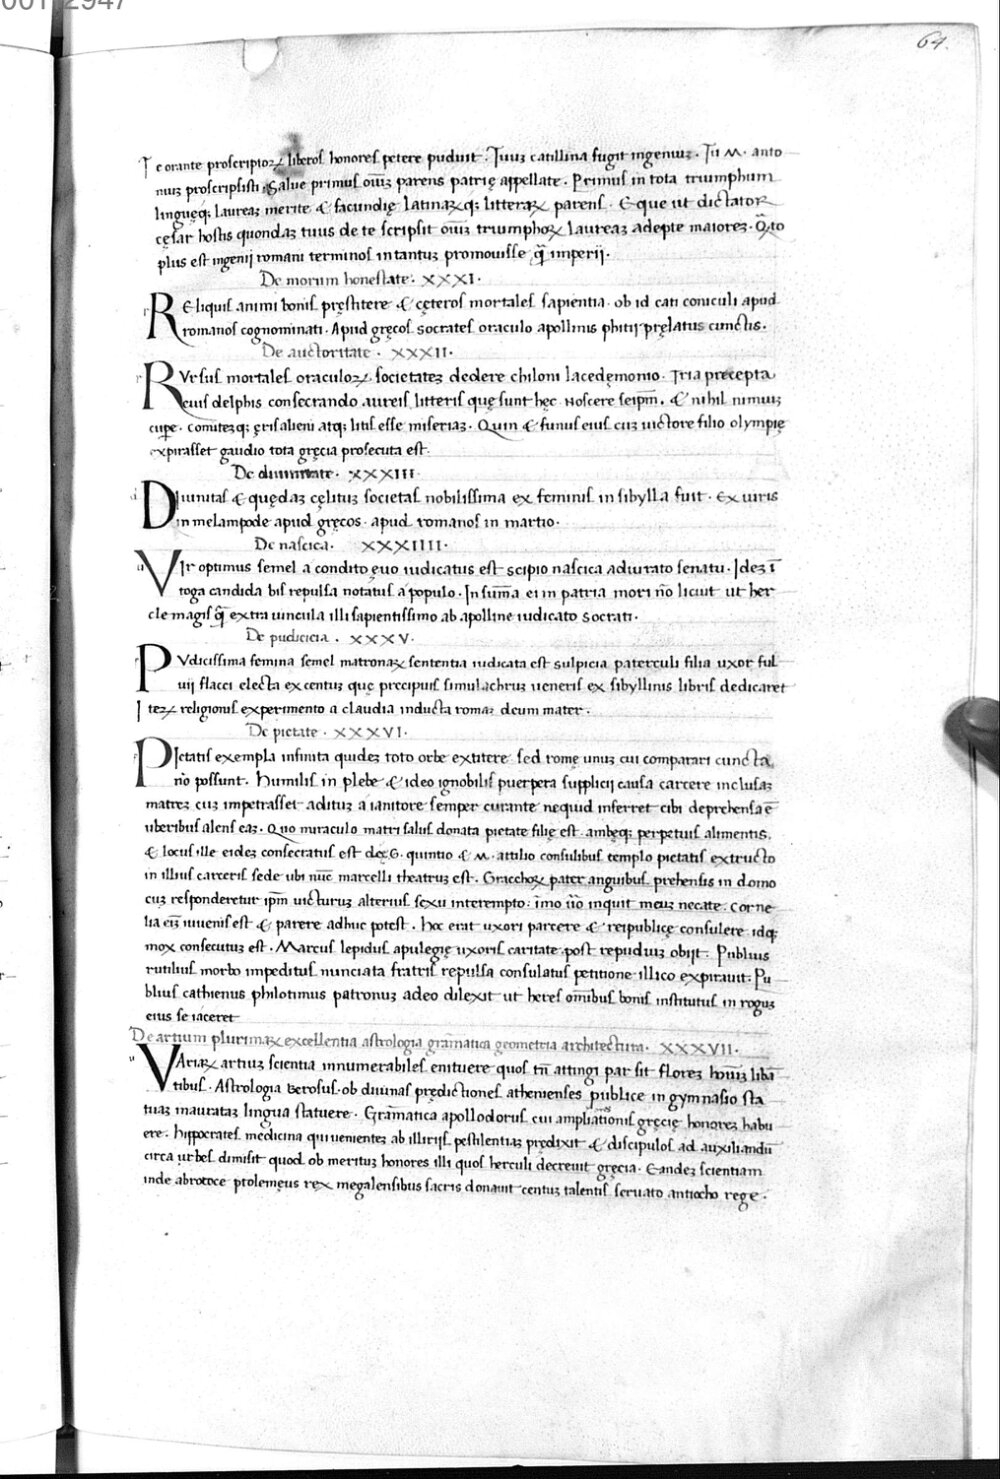 64.
Te orante proscriptoꝝ liberos honores petere puduit. Tuuꝫ catillina fugit ingeniuꝫ. Tu M. anto
niuꝫ proscripsisti. Salue primus oīuꝫ parens patrię appellate. Primus in tota triumphum
linguęqꝫ laureaꝫ merite & facundię latinaꝝqꝫ litteraꝝ parens. Eque ut dictator
cęsar hostis quondaꝫ tuus de te scripsit oīuꝫ triumphoꝝ laureaꝫ adepte maioreꝫ. Qꝫto
plus est ingenij romani terminos in tantuꝫ promouisse q̄ imperij.
De morum honestate. XXXI.
r REliquis animi bonis pręstitere & cęteros mortales sapientia. ob id cati coruculi apud
romanos cognominati. Apud gręcos socrates oraculo apollinis phitij pręlatus cunctis.
De auctoritate. XXXII.
r RVrsus mortales oraculoꝝ societateꝫ dedere chiloni lacedęmonio. Tria precepta
eius delphis consecrando aureis litteris quę sunt hęc. Noscere seip̄m. & nihil nimiuꝫ
cupe. comiteꝫqꝫ ęris alieni atqꝫ litis esse miseriaꝫ. Quin & funus eius cuꝫ uictore filio olympię
expirasset gaudio tota gręcia prosecuta est.
De diuinitate. XXXIII
d DIuinitas & quędaꝫ cęlituꝫ societas nobilissima ex feminis in sibylla fuit. Ex uiris
in melampode apud gręcos. apud romanos in martio.
De nasica. XXXIIII.
u VIr optimus semel a condito ęuo iudicatus est scipio nasica adiurato senatu. Ideꝫ ī
toga candida bis repulsa notatus a populo. In sum̄a ei in patria mori nō licuit ut her
cle magis q̄ extra uincula illi sapientissimo ab apolline iudicato socrati.
De pudicicia. XXXV.
p PVdicissima femina semel matronaꝝ sententia iudicata est sulpicia paterculi filia uxor ful
uij flacci electa ex centuꝫ quę precipuis simulachruꝫ ueneris ex sibyllinis libris dedicaret
Iteꝝ religionis experimento a claudia inducta romaꝫ deum mater.
De pietate. XXXVI.
p PIetatis exempla infinita quideꝫ toto orbe extitere sed romę unuꝫ cui comparari cuncta
nō possunt. Humilis in plebe & ideo ignobilis puerpera supplicij causa carcere inclusaꝫ
matreꝫ cuꝫ impetrasset aditum a ianitore semper curante nequid inferret cibi deprehensa ē
uberibus alens eaꝫ. Quo miraculo matri salus donata pietate filię est. ambęqꝫ perpetuis alimentis.
& locus ille eideꝫ consecratus est deę G. quintio & M. attilio consulibus templo pietatis extructo
in illius carceris sede ubi nūc marcelli theatruꝫ est. Gracchoꝝ pater anguibus prehensis in domo
cuꝫ responderetur ip̄m uicturuꝫ alterius sexu interempto: īmo ūo inquit meuꝫ necate. Corne
lia eīꝫ iuuenis est & parere adhuc potest. hoc erat uxori parcere & reipublicę consulere. idqꝫ
mox consecutuꝫ est. Marcus lepidus apulegię uxoris caritate post repudiuꝫ obijt. Publius
rutilius morbo impeditus nunciata fratris repulsa consulatus petitione illico expirauit. Pu
blius cathienus philotimus patronuꝫ adeo dilexit ut heres om̄ibus bonis institutus in roguꝫ
eius se iaceret
De artium plurimaꝝ excellentia astrologia gramatica geometria architectura. XXXVII.
u VAriaꝝ artiuꝫ scientia innumerabiles enituere quos tn̄ attingi par sit floreꝫ hoīuꝫ libā
tibus. Astrologia berosus. ob diuinas prędictiones athenienses publice in gymnasio sta
tuaꝫ inaurataꝫ lingua statuere. Gram̄atica apollodorus cui ampliationis gręcię honoreꝫ habu
ere. hippocrates medicina qui uenienteꝫ ab illirijs pestilentiaꝫ prędixit & discipulos ad auxiliandū
circa urbes dimisit quod ob merituꝫ honores illi quos herculi decreuit gręcia. Eandeꝫ scientiam
inde abrotoce ptolemęus rex megalensibus sacris donauit centuꝫ talentis seruato antiocho rege.